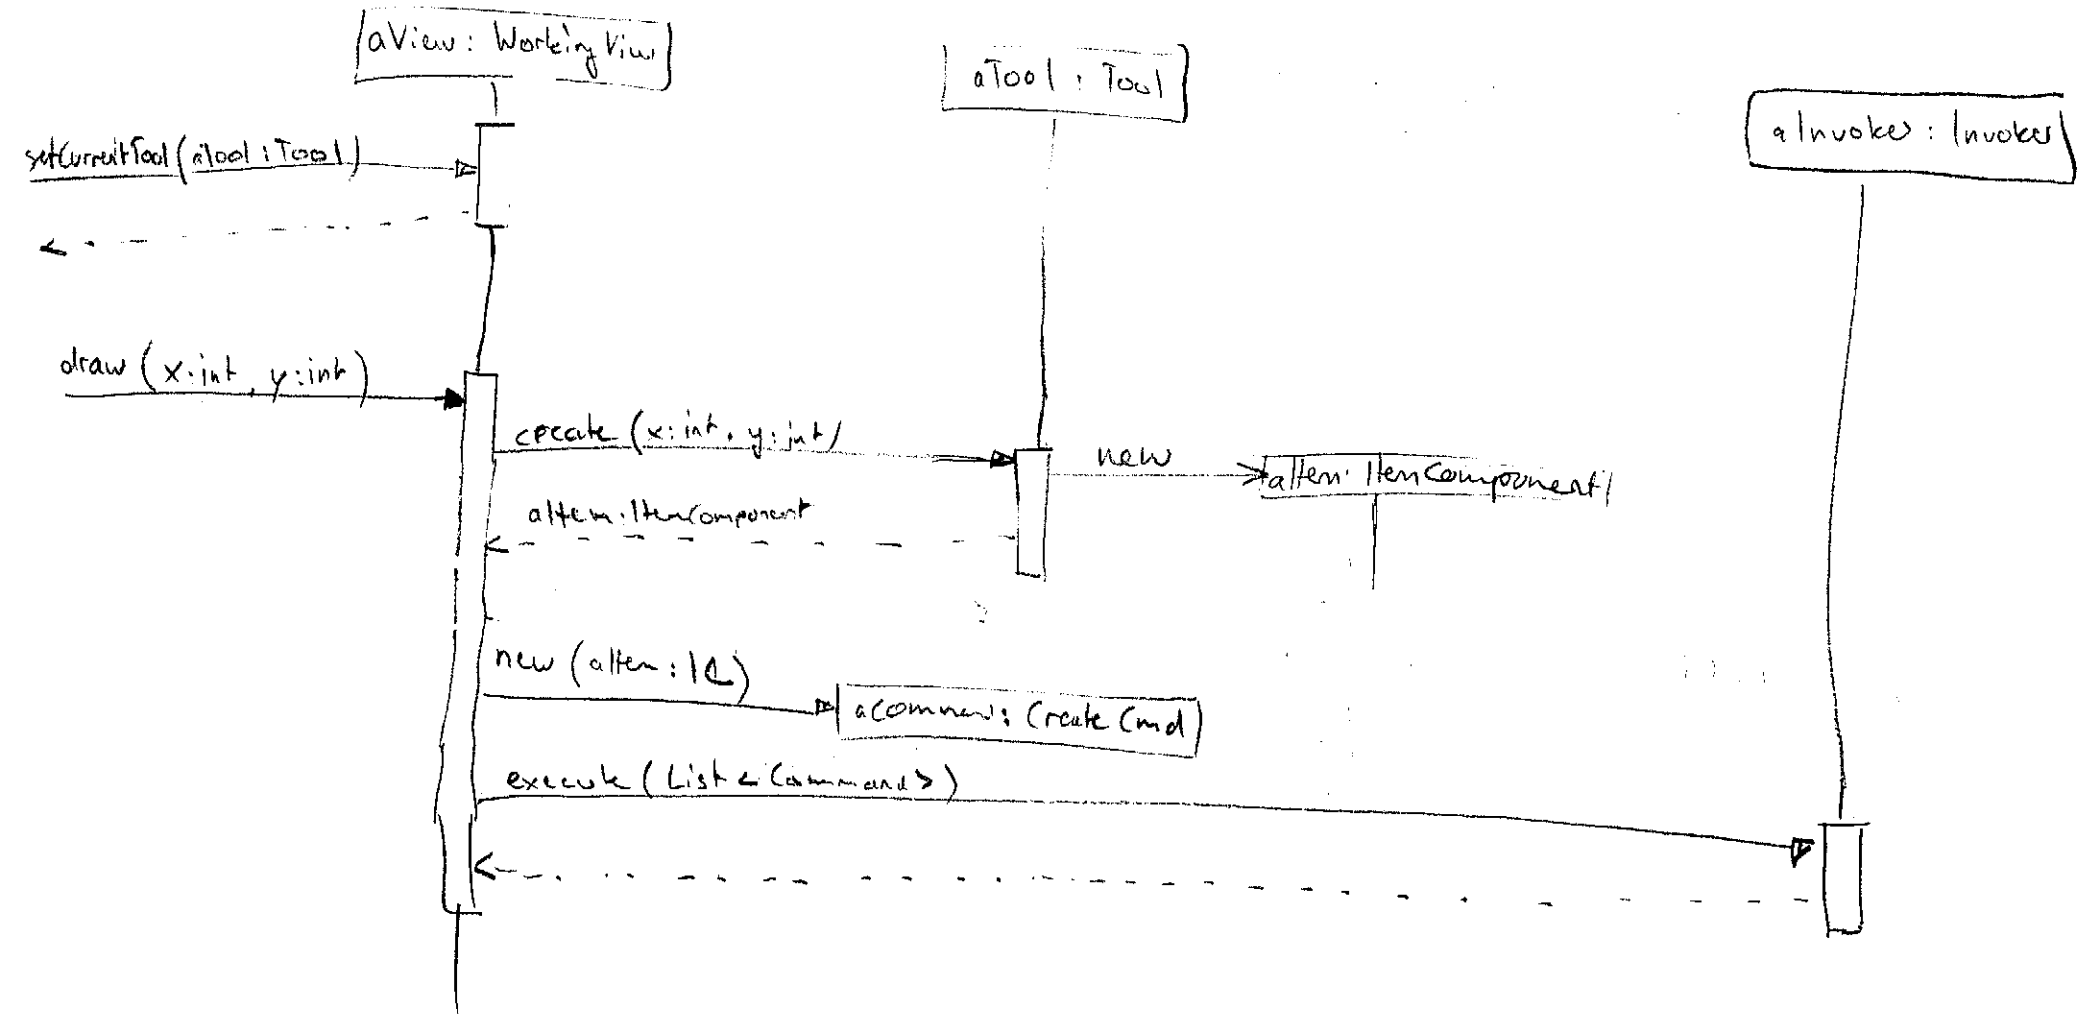 aView: WorkingView
aTool : Tool
aInvoker : Invoker
setCurrentTool(aTool : Tool)
draw (x:int, y:int)
create (x:int, y:int)
new
aItem: ItemComponent
aItem:ItemComponent
new (aItem : IC)
: CreateCmd
execute (List<Command>)